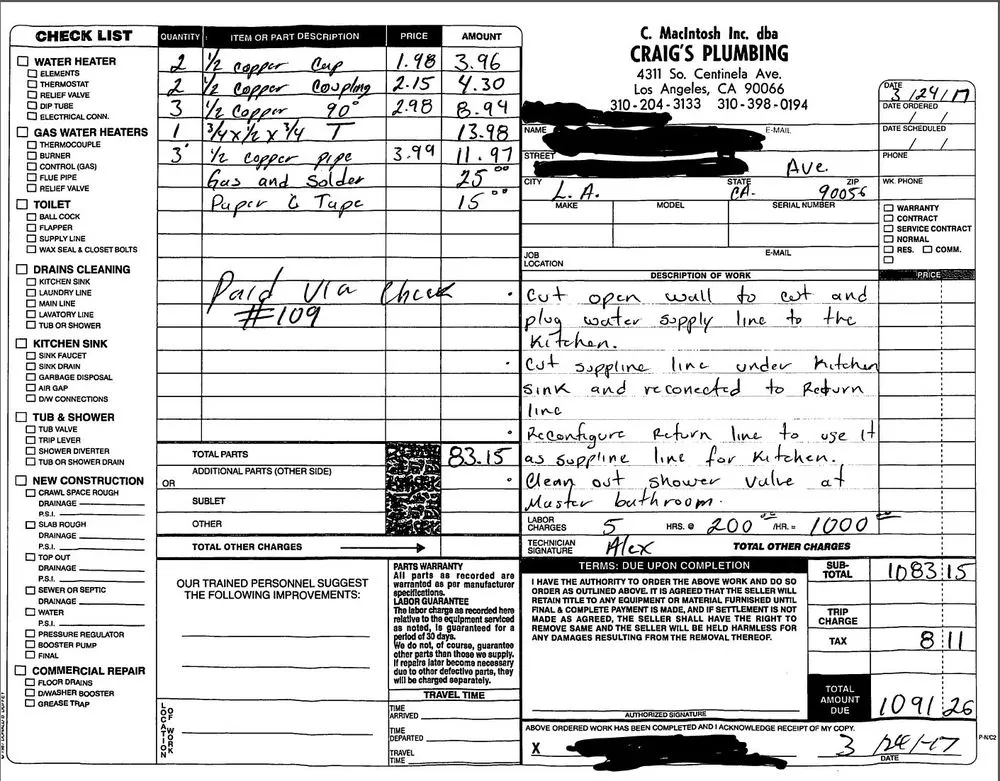 CHECK LIST
WATER HEATER
ELEMENTS
THERMOSTAT
RELIEF VALVE
DIP TUBE
ELECTRICAL CONN.
GAS WATER HEATERS
THERMOCOUPLE
BURNER
CONTROL (GAS)
FLUE PIPE
RELIEF VALVE
TOILET
BALL COCK
FLAPPER
SUPPLY LINE
WAX SEAL & CLOSET BOLTS
DRAINS CLEANING
KITCHEN SINK
LAUNDRY LINE
MAIN LINE
LAVATORY LINE
TUB OR SHOWER
KITCHEN SINK
SINK FAUCET
SINK DRAIN
GARBAGE DISPOSAL
AIR GAP
D/W CONNECTIONS
TUB & SHOWER
TUB VALVE
TRIP LEVER
SHOWER DIVERTER
TUB OR SHOWER DRAIN
NEW CONSTRUCTION
CRAWL SPACE ROUGH
DRAINAGE
P.S.I.
SLAB ROUGH
DRAINAGE
P.S.I.
TOP OUT
DRAINAGE
P.S.I.
SEWER OR SEPTIC
DRAINAGE
WATER
P.S.I.
PRESSURE REGULATOR
BOOSTER PUMP
FINAL
COMMERCIAL REPAIR
FLOOR DRAINS
D/WASHER BOOSTER
GREASE TRAP
QUANTITY ITEM OR PART DESCRIPTION PRICE AMOUNT
2 1/2 copper cap 1.98 3.96
2 1/2 copper coupling 2.15 4.30
3 1/2 copper 90° 2.98 8.94
1 3/4 x 1/2 x 3/4 T 13.98
3 1/2 copper pipe 3.99 11.97
Gas and Solder 25 00
Paper & Tape 15 00
Paid via Check
#109
TOTAL PARTS 83.15
ADDITIONAL PARTS (OTHER SIDE)
OR
SUBLET
OTHER
TOTAL OTHER CHARGES
OUR TRAINED PERSONNEL SUGGEST
THE FOLLOWING IMPROVEMENTS:
PARTS WARRANTY
All parts as recorded are
warranted as per manufacturer
specifications.
LABOR GUARANTEE
The labor charge as recorded here
relative to the equipment serviced
as noted, is guaranteed for a
period of 30 days.
We do not, of course, guarantee
other parts than those we supply.
If repairs later become necessary
due to other defective parts, they
will be charged separately.
TRAVEL TIME
LOCATION OF WORK
TIME
ARRIVED
TIME
DEPARTED
TRAVEL
TIME
C. MacIntosh Inc. dba
CRAIG'S PLUMBING
4311 So. Centinela Ave.
Los Angeles, CA 90066
310-204-3133 310-398-0194
DATE
3/24/17
DATE ORDERED
/ /
DATE SCHEDULED
/ /
PHONE
WK. PHONE
NAME E-MAIL
STREET Ave.
CITY STATE ZIP
L.A. CA. 90056
MAKE MODEL SERIAL NUMBER
WARRANTY
CONTRACT
SERVICE CONTRACT
NORMAL
RES. COMM.
JOB
LOCATION
E-MAIL
DESCRIPTION OF WORK PRICE
Cut open wall to cut and
plug water supply line to the
Kitchen.
Cut suppline line under Kitchen
sink and reconected to Return
line
Reconfigure Return line to use it
as suppline line for Kitchen.
Clean out shower valve at
Master bathroom.
LABOR
CHARGES 5 HRS. @ 200 00 /HR. = 1000 00
TECHNICIAN
SIGNATURE Alex TOTAL OTHER CHARGES
TERMS: DUE UPON COMPLETION
I HAVE THE AUTHORITY TO ORDER THE ABOVE WORK AND DO SO
ORDER AS OUTLINED ABOVE. IT IS AGREED THAT THE SELLER WILL
RETAIN TITLE TO ANY EQUIPMENT OR MATERIAL FURNISHED UNTIL
FINAL & COMPLETE PAYMENT IS MADE, AND IF SETTLEMENT IS NOT
MADE AS AGREED, THE SELLER SHALL HAVE THE RIGHT TO
REMOVE SAME AND THE SELLER WILL BE HELD HARMLESS FOR
ANY DAMAGES RESULTING FROM THE REMOVAL THEREOF.
AUTHORIZED SIGNATURE
SUB-
TOTAL 1083 15
TRIP
CHARGE
TAX 8 11
TOTAL
AMOUNT
DUE 1091 26
ABOVE ORDERED WORK HAS BEEN COMPLETED AND I ACKNOWLEDGE RECEIPT OF MY COPY.
X 3/24/-17
DATE
P-N/C2